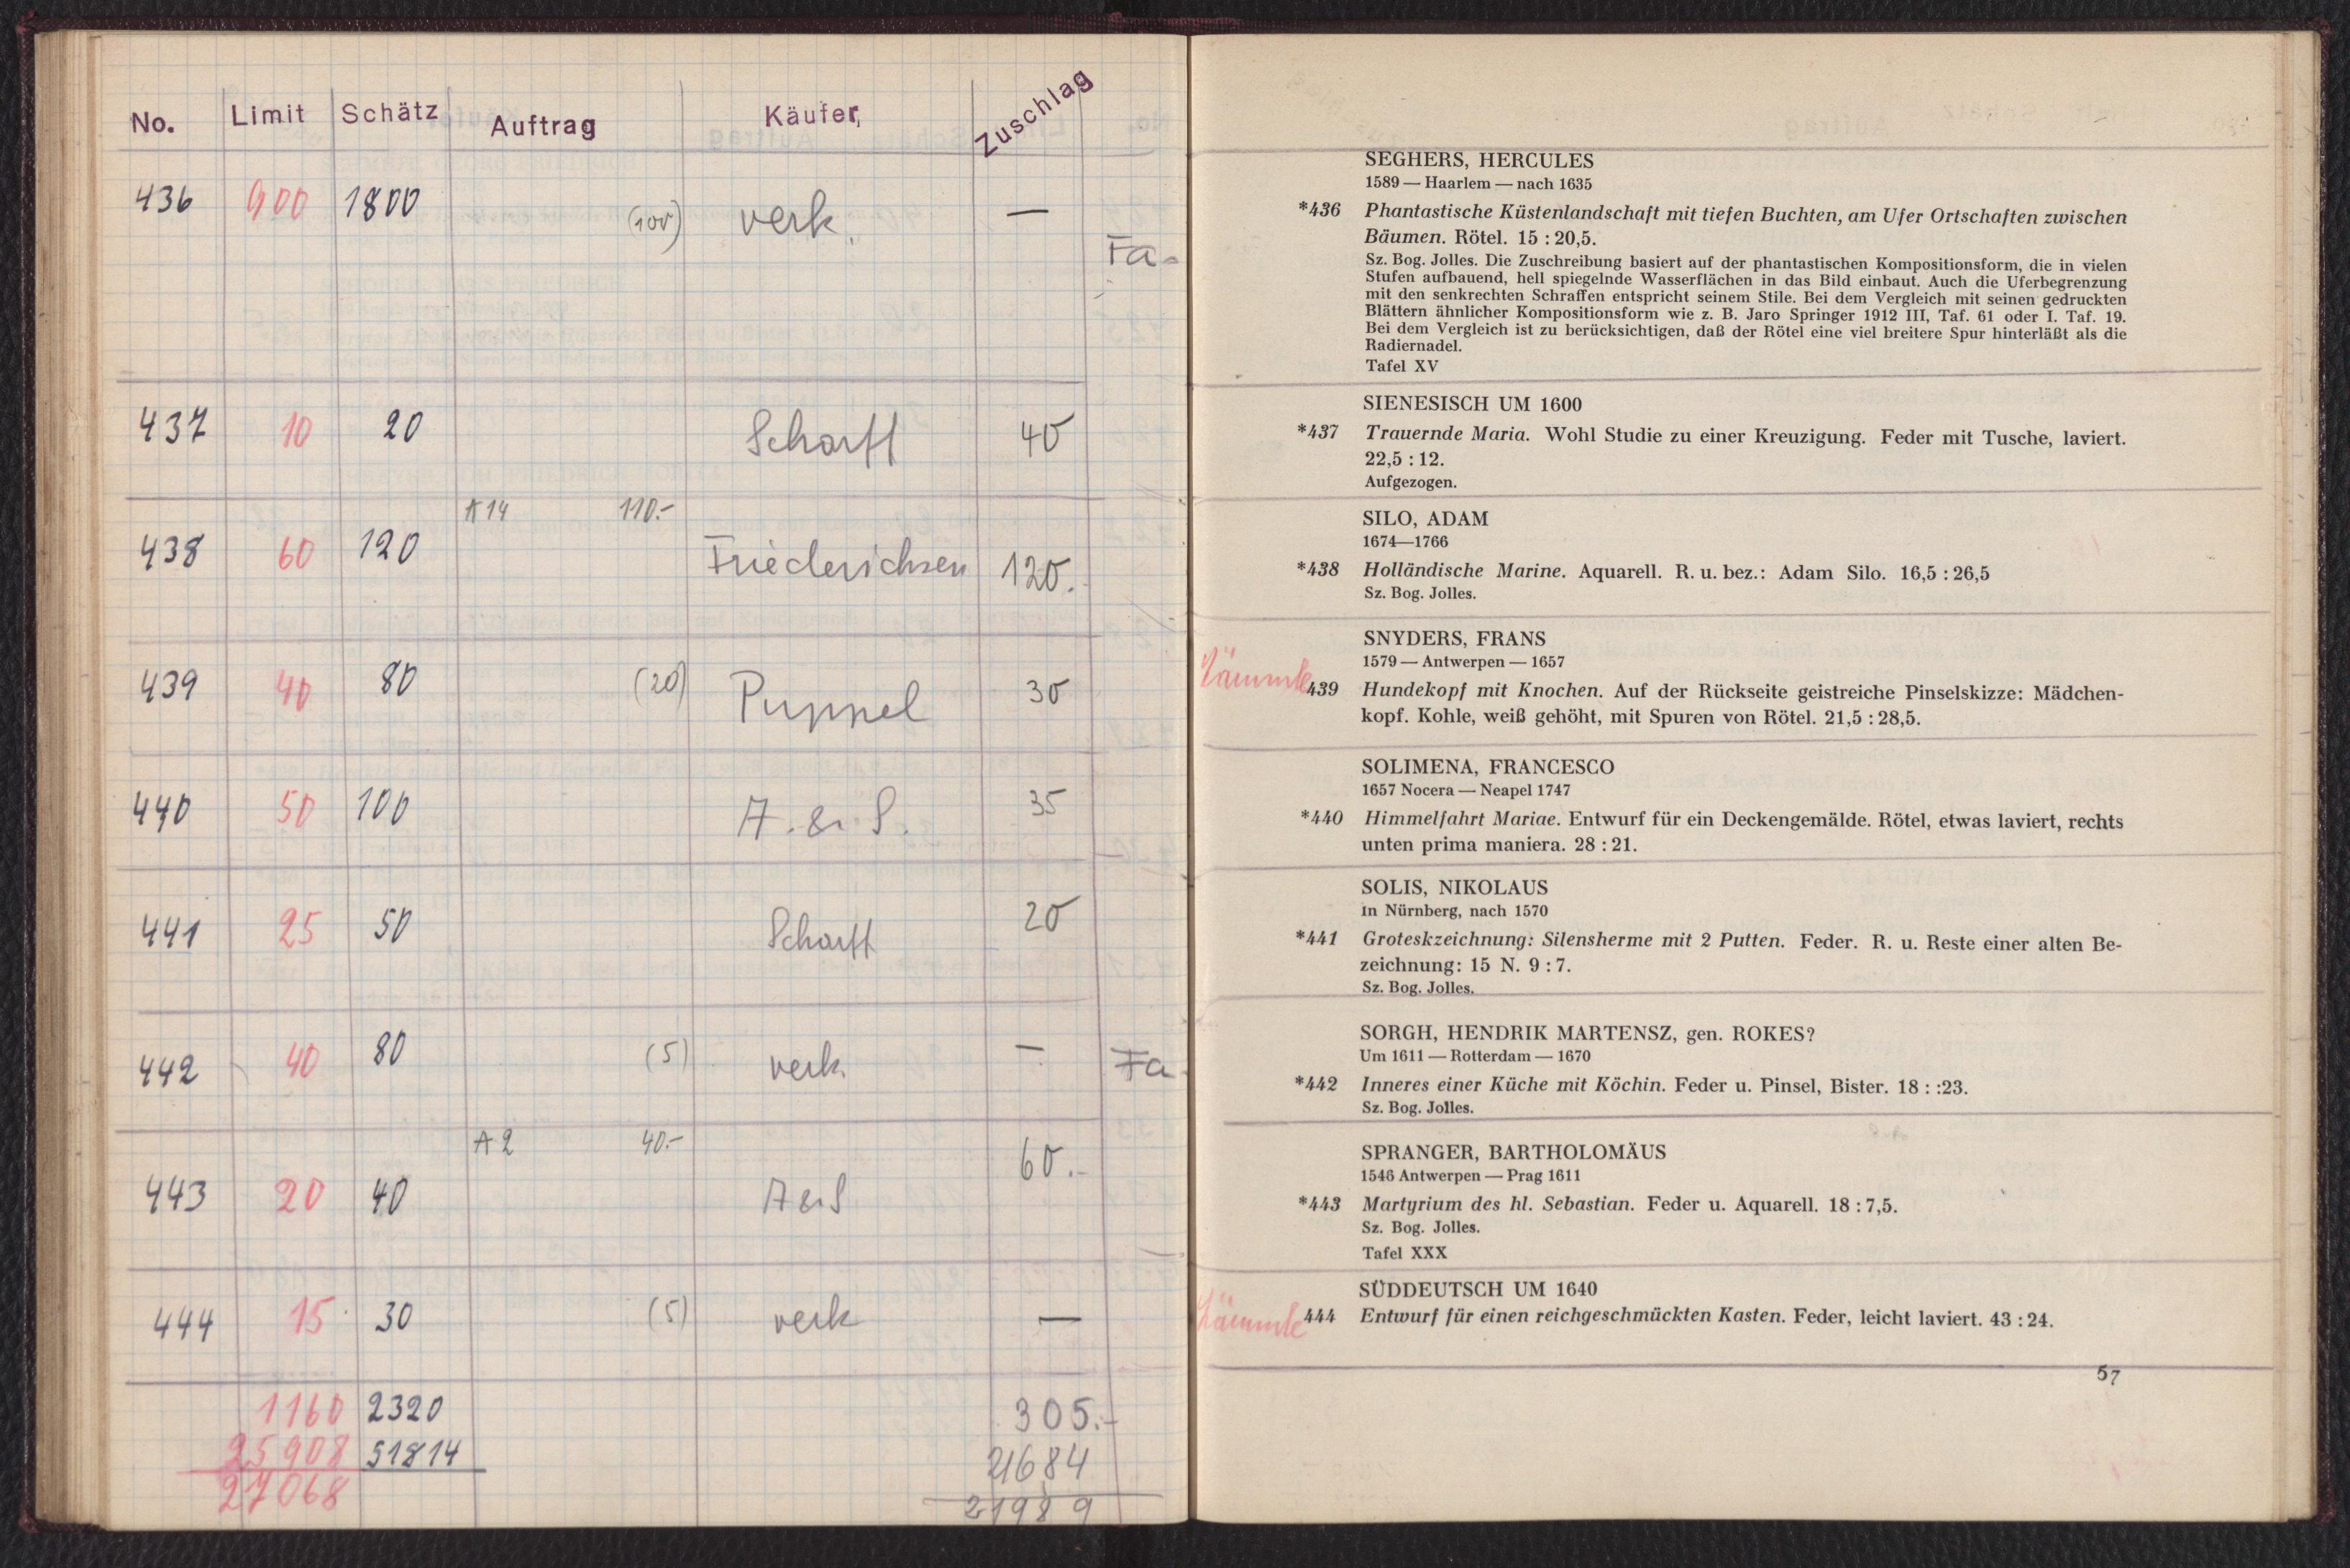 No. Limit Schätz Auftrag Käufer, Zuschlag
436 900 1800 (100) verk. —
Fa.
437 10 20 Scharff 40
A 14 110.-
438 60 120 Friederichsen 120.
439 40 80 (20) Puppel 30
440 50 100 A. & S. 35
441 25 50 Scharff 20
442 40 80 (5) verk. — Fa.
A 2 40.-
443 20 40 A & S 60.-
444 15 30 (5) verk —
1160 2320 305.-
25908 51814 21684
27068 21989
SEGHERS, HERCULES
1589 — Haarlem — nach 1635
*436 Phantastische Küstenlandschaft mit tiefen Buchten, am Ufer Ortschaften zwischen
Bäumen. Rötel. 15 : 20,5.
Sz. Bog. Jolles. Die Zuschreibung basiert auf der phantastischen Kompositionsform, die in vielen
Stufen aufbauend, hell spiegelnde Wasserflächen in das Bild einbaut. Auch die Uferbegrenzung
mit den senkrechten Schraffen entspricht seinem Stile. Bei dem Vergleich mit seinen gedruckten
Blättern ähnlicher Kompositionsform wie z. B. Jaro Springer 1912 III, Taf. 61 oder I. Taf. 19.
Bei dem Vergleich ist zu berücksichtigen, daß der Rötel eine viel breitere Spur hinterläßt als die
Radiernadel.
Tafel XV
SIENESISCH UM 1600
*437 Trauernde Maria. Wohl Studie zu einer Kreuzigung. Feder mit Tusche, laviert.
22,5 : 12.
Aufgezogen.
SILO, ADAM
1674—1766
*438 Holländische Marine. Aquarell. R. u. bez.: Adam Silo. 16,5 : 26,5
Sz. Bog. Jolles.
SNYDERS, FRANS
1579 — Antwerpen — 1657
Lämmle 439 Hundekopf mit Knochen. Auf der Rückseite geistreiche Pinselskizze: Mädchen-
kopf. Kohle, weiß gehöht, mit Spuren von Rötel. 21,5 : 28,5.
SOLIMENA, FRANCESCO
1657 Nocera — Neapel 1747
*440 Himmelfahrt Mariae. Entwurf für ein Deckengemälde. Rötel, etwas laviert, rechts
unten prima maniera. 28 : 21.
SOLIS, NIKOLAUS
in Nürnberg, nach 1570
*441 Groteskzeichnung: Silensherme mit 2 Putten. Feder. R. u. Reste einer alten Be-
zeichnung: 15 N. 9 : 7.
Sz. Bog. Jolles.
SORGH, HENDRIK MARTENSZ, gen. ROKES?
Um 1611 — Rotterdam — 1670
*442 Inneres einer Küche mit Köchin. Feder u. Pinsel, Bister. 18 : :23.
Sz. Bog. Jolles.
SPRANGER, BARTHOLOMÄUS
1546 Antwerpen — Prag 1611
*443 Martyrium des hl. Sebastian. Feder u. Aquarell. 18 : 7,5.
Sz. Bog. Jolles.
Tafel XXX
SÜDDEUTSCH UM 1640
Lämmle 444 Entwurf für einen reichgeschmückten Kasten. Feder, leicht laviert. 43 : 24.
57